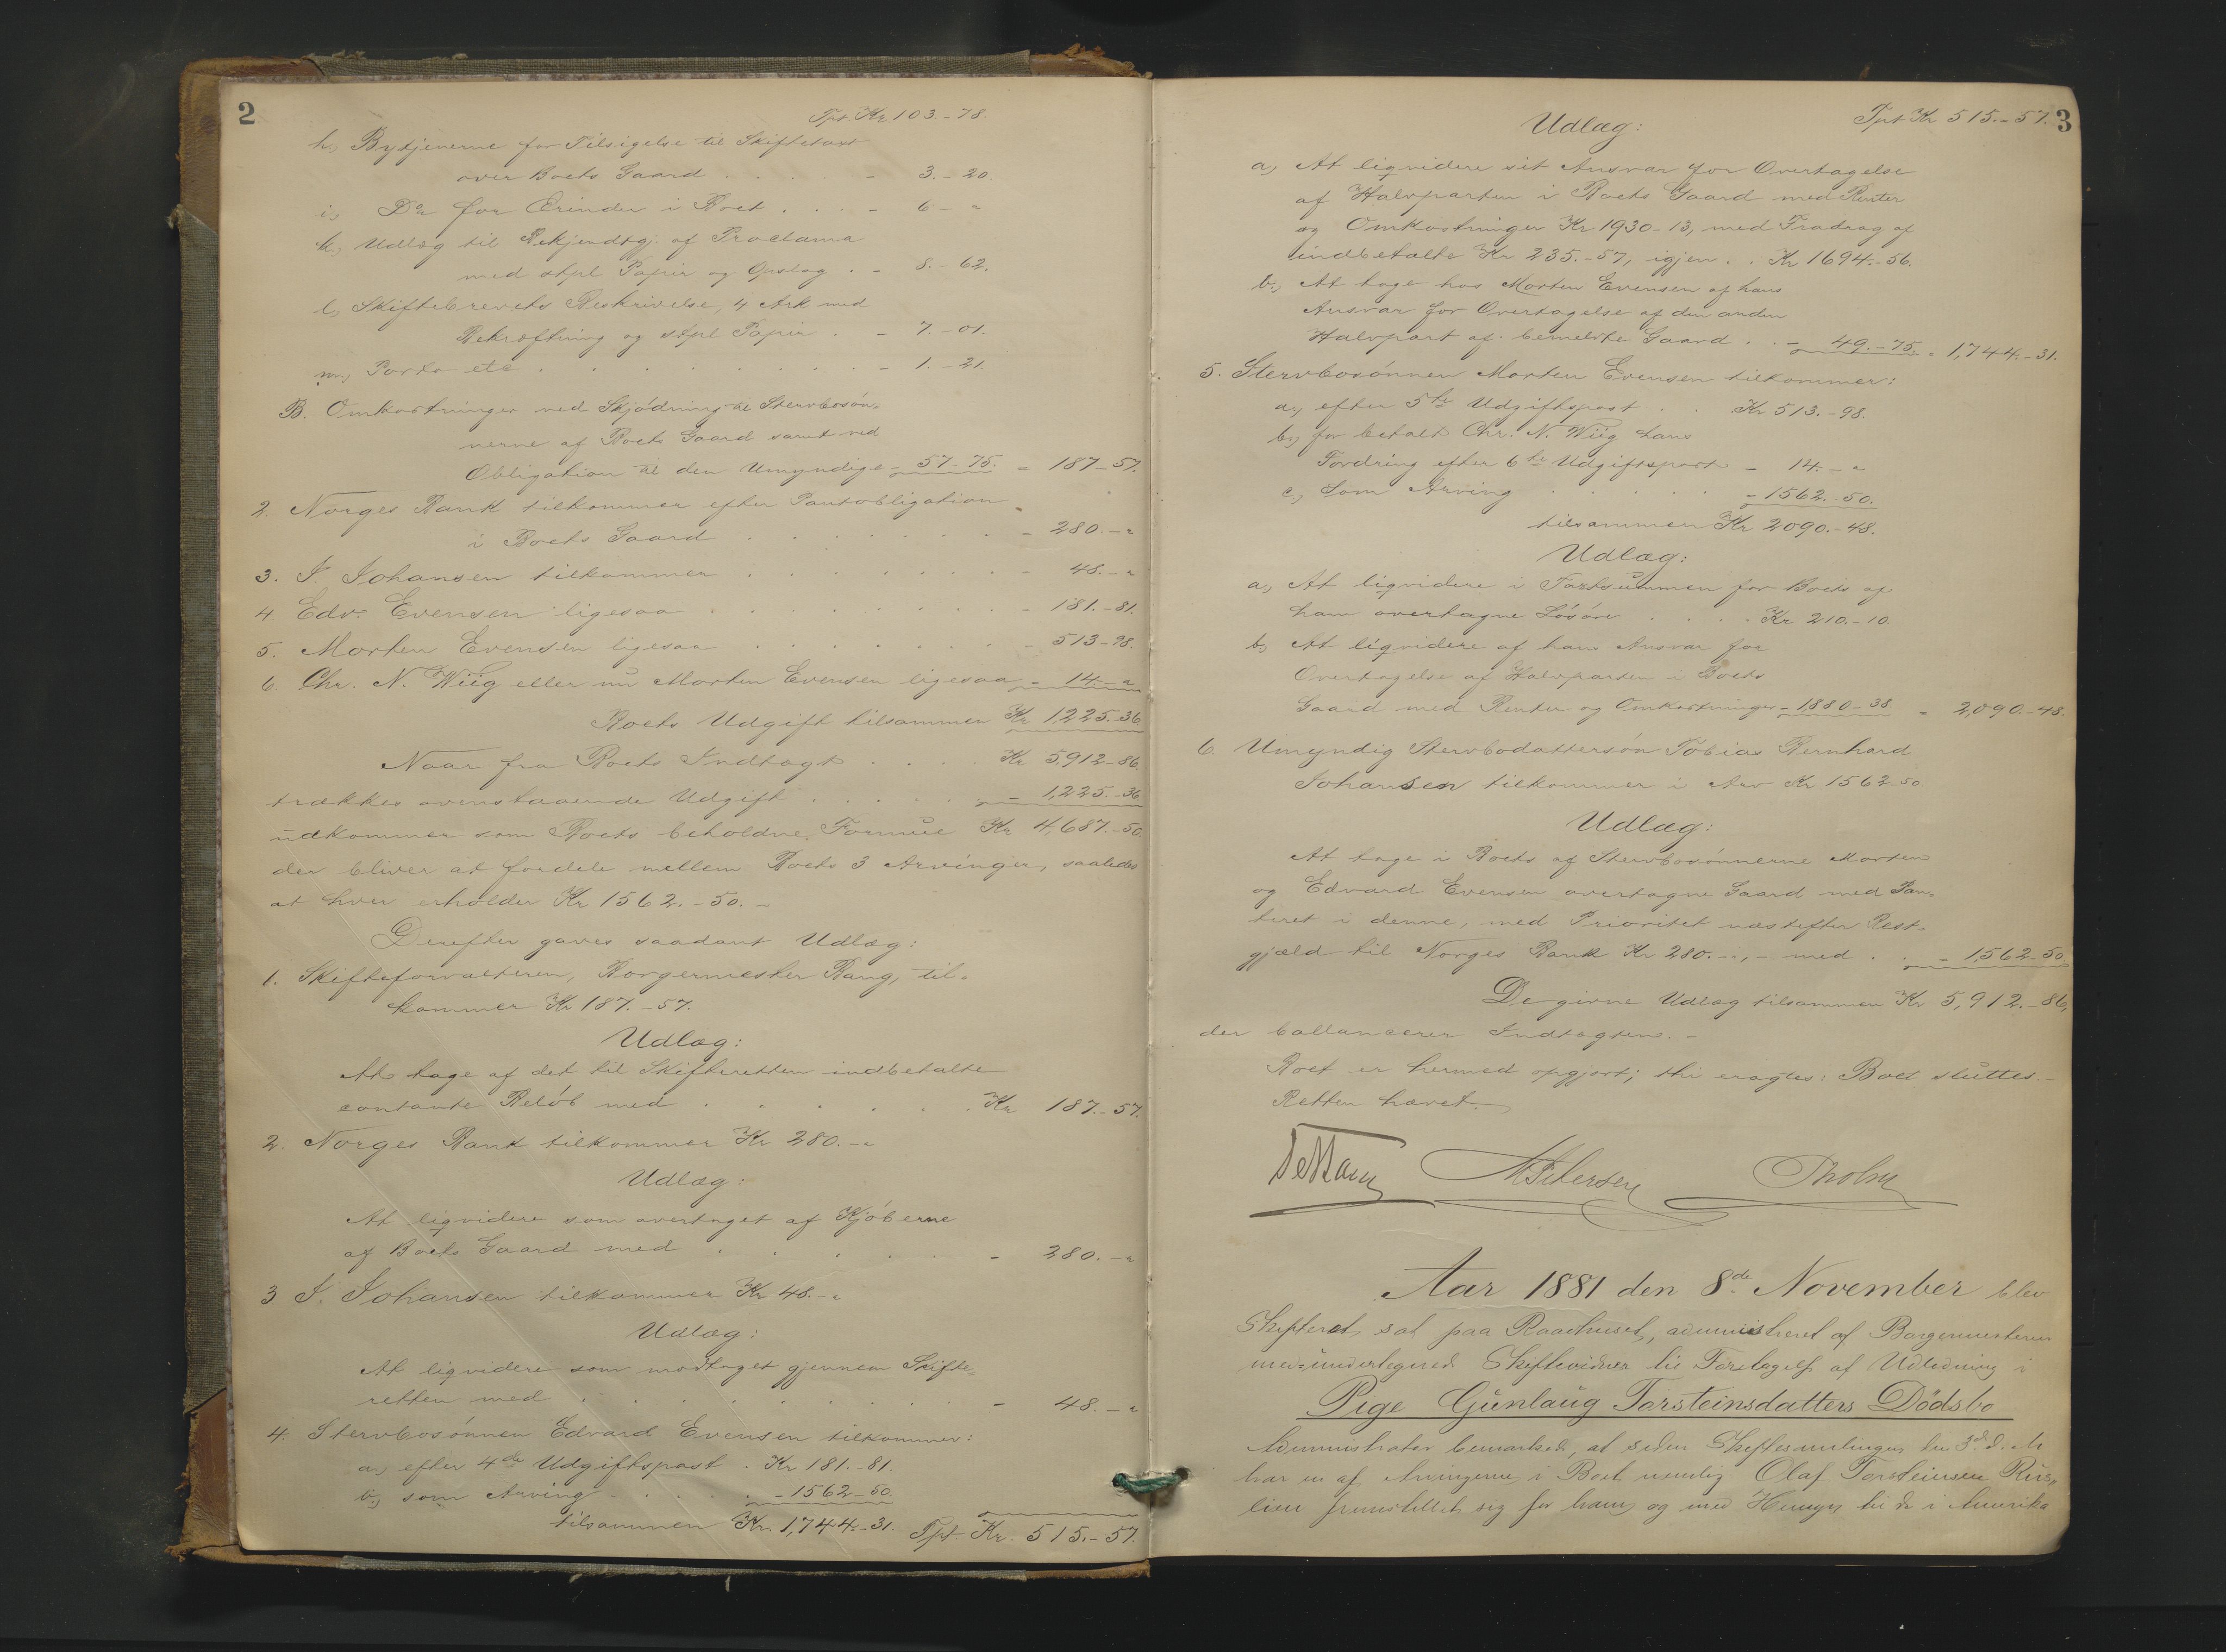 2
Tpt Kr 103-78.
h., Bytjenerne for Tilsigelse til Skiftetaxt
over Boets Gaard . . . . - 3.-20.
i., Do for Ærinder i Boet . . . - 6 - "
k., Udlæg til Bekjendtgj. af Proclama
med stpl. Papir og Opslag . - 8.-62.
l., Skiftebrevets Beskrivelse, 4 Ark med
Bekræftning og stpl Papir . - 7.-01.
m., Porto etc . . . . . . . . - 1.-21.
B. Omkostninger ved Skjödning til Stervbosön-
nerne af Boets Gaard samt ved
Obligation til den Umyndige - 57-75. = 187-57.
2. Norges Bank tilkommer efter Pantobligation
i Boets Gaard . . . . . . . - 280.-"
3. J. Johansen tilkommer . . . . . . - 48.-"
4. Edv. Evensen ligesaa . . . . . . . - 181.-81.
5. Morten Evensen ligesaa . . . . . . - 513-98.
6. Chr. N. Wiig eller nu Morten Evensen ligesaa - 14.-"
Boets Udgift tilsammen Kr 1,225.-36
Naar fra Boets Indtægt . . . . Kr 5,912-86.
trækkes ovenstaaende Udgift . . . . . - 1,225-36
udkommer som Boets beholdne Formue Kr 4,687.-50.
der bliver at fordele mellem Boets 3 Arvinger, saaledes
at hver erholder Kr 1562.-50.-
Derefter gaves saadant Udlæg:
1. Skifteforvalteren, Borgermester Bang, til-
kommer Kr 187.-57.
Udlæg:
At tage af det til Skifteretten indbetalte
contante Belöb med . . . . . . Kr 187.-57.
2. Norges Bank tilkommer Kr 280.-"
Udlæg:
At liqvidere som overtaget af Kjöberne
af Boets Gaard med . . . . . . - 280.-"
3. J. Johansen tilkommer Kr 48.-"
Udlæg:
At liqvidere som modtaget gjennem Skifte-
retten med . . . . . . . . - 48.-"
4. Stervbosönnen Edvard Evensen tilkommer:
a., efter 4de Udgiftspost . Kr 181.-81.
b., som Arving . . . . . - 1562-50.
tilsammen Kr. 1,744.-31. Tpt Kr. 515.-57.
Tpt Kr 515.-57. 3
Udlæg:
a., At liqvidere sit Ansvar for Overtagelse
af Halvparten i Boets Gaard med Renter
og Omkostninger Kr 1930-13, med Fradrag af
indbetalte Kr 235.-57, igjen . . Kr 1694.-56.
b., At tage hos Morten Evensen af hans
Ansvar for Overtagelse af den anden
Halvpart af bemeldte Gaard . . - 49.-75. - 1,744.-31.
5. Stervbosönnen Morten Evensen tilkommer:
a., efter 5te Udgiftspost . . Kr 513.-98.
b., for betalt Chr. N. Wiig hans
Fordring efter 6te Udgiftspost - 14.-"
c., Som Arving . . . . . - 1562.-50.
tilsammen Kr 2090.-48.
Udlæg:
a., At liqvidere i Taxtsummen for Boets af
ham overtagne Lösöre . . . . Kr 210.-10.
b., At liqvidere af hans Ansvar for
Overtagelse af Halvparten i Boets
Gaard med Renter og Omkostninger - 1880-38 - 2,090.-48.
6. Umyndig Stervbodattersön Tobias Bernhard
Johansen tilkommer i Arv Kr 1562-50
Udlæg:
At tage i Boets af Stervbosönnerne Morten
og Edvard Evensen overtagne Gaard med Pan-
teret i denne, med Prioritet næstefter Rest-
gjæld til Norges Bank Kr 280.-,- med . . - 1,562-50.
De givne Udlæg tilsammen Kr 5,912.-86,
der ballancerer Indtægten.-
Boet er hermed opgjort; thi eragtes: Boet sluttes.-
Retten hævet.
Aar 1881 den 8de November blev
Skifteret sat paa Raadhuset, administreret af Borgermesteren
med undertegnede Skiftevidner til Foretagelse af Udlodning i
Pige Gunlaug Torsteinsdatters Dödsbo
Administrator bemærkede, at siden Skiftesamlingen den 3de d. M.
har en af Arvingerne i Boet nemlig Olaf Torsteinsen
fremstillet sig for ham, og med Hensyn til de i Amerika